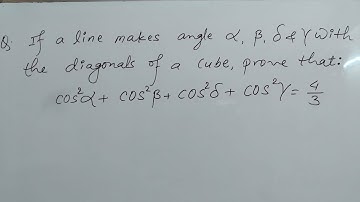 Q. If a line makes angle α, β, δ & γ with
the diagonals of a cube, prove that:
cos²α + cos²β + cos²δ + cos²γ = 4/3